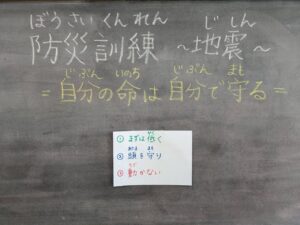 ぼうさいくんれん じしん
防災訓練 ～地震～
じぶん いのち じぶん まも
=自分の命は自分で守る=
① まずは低く
あたま まも
② 頭を守り
うご
③ 動かない